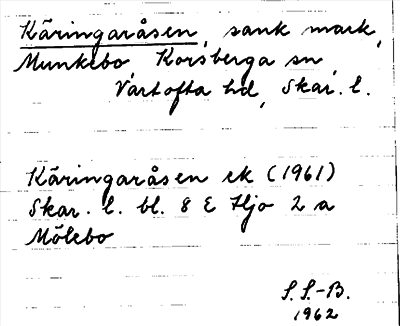 Käringaråsen, sank mark,
Munkebo, Korsberga sn,
Vartofta hd, Skar. l.
Käringaråsen ek (1961)
Skar. l. bl. 8 E Hjo 2 a
Mölebo
S.S.-B.
1962